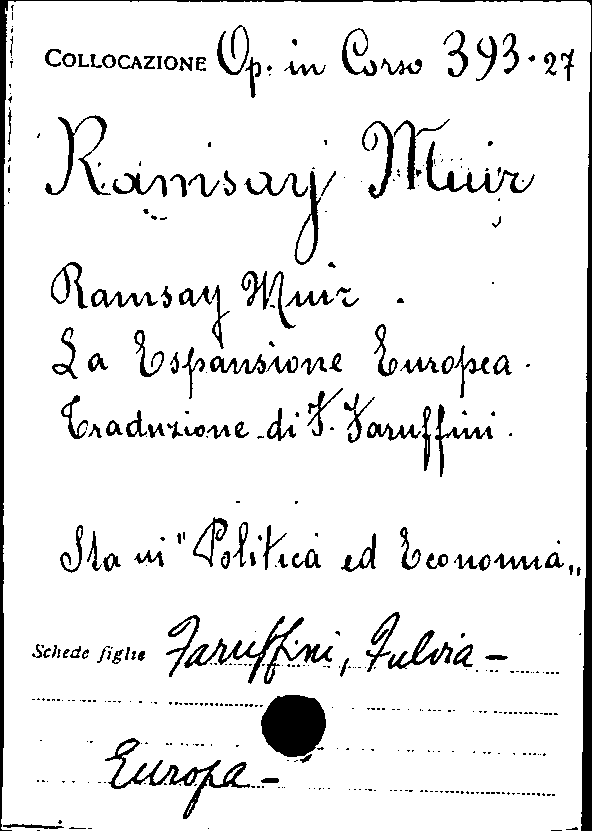 COLLOCAZIONE Op. in Corso 393.27
Ramsay Muir
Ramsay Muir.
La Espansione Europea.
Traduzione di F. Faruffini.
Sta in "Politica ed Economia„
Schede figlie Faruffini, Fulvia -
Europa -